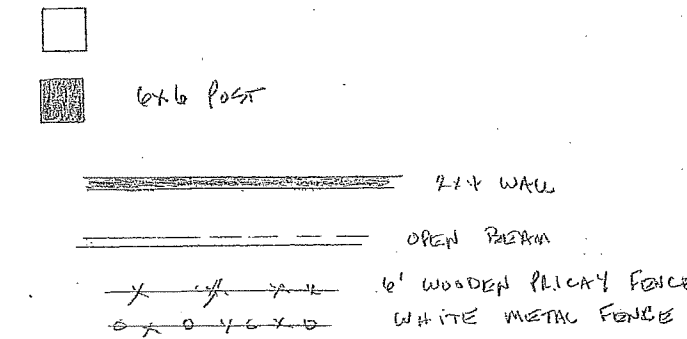 6x6 POST
2x4 WALL
OPEN BEAM
6' WOODEN PRICAY FENCE
WHITE METAL FENCE